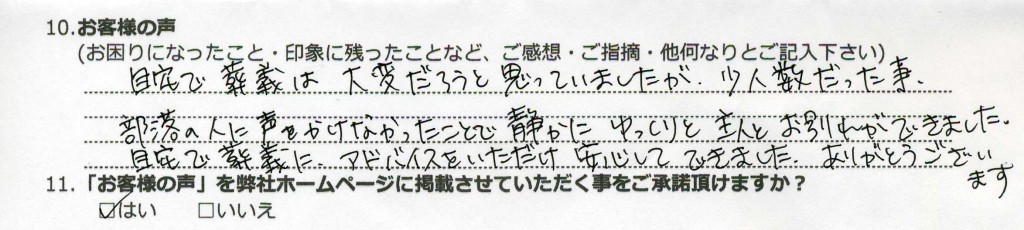 10.お客様の声
(お困りになったこと・印象に残ったことなど、ご感想・ご指摘・他何なりとご記入下さい)
自宅で葬義は大変だろうと思っていましたが、少人数だった事、
部落の人に声をかけなかったことで静かにゆっくりと主人とお別れができました。
自宅で葬義に、アドバイスをいただけ安心してできました。ありがとうござい
ます
11.「お客様の声」を弊社ホームページに掲載させていただく事をご承諾頂けますか？
☑はい　□いいえ